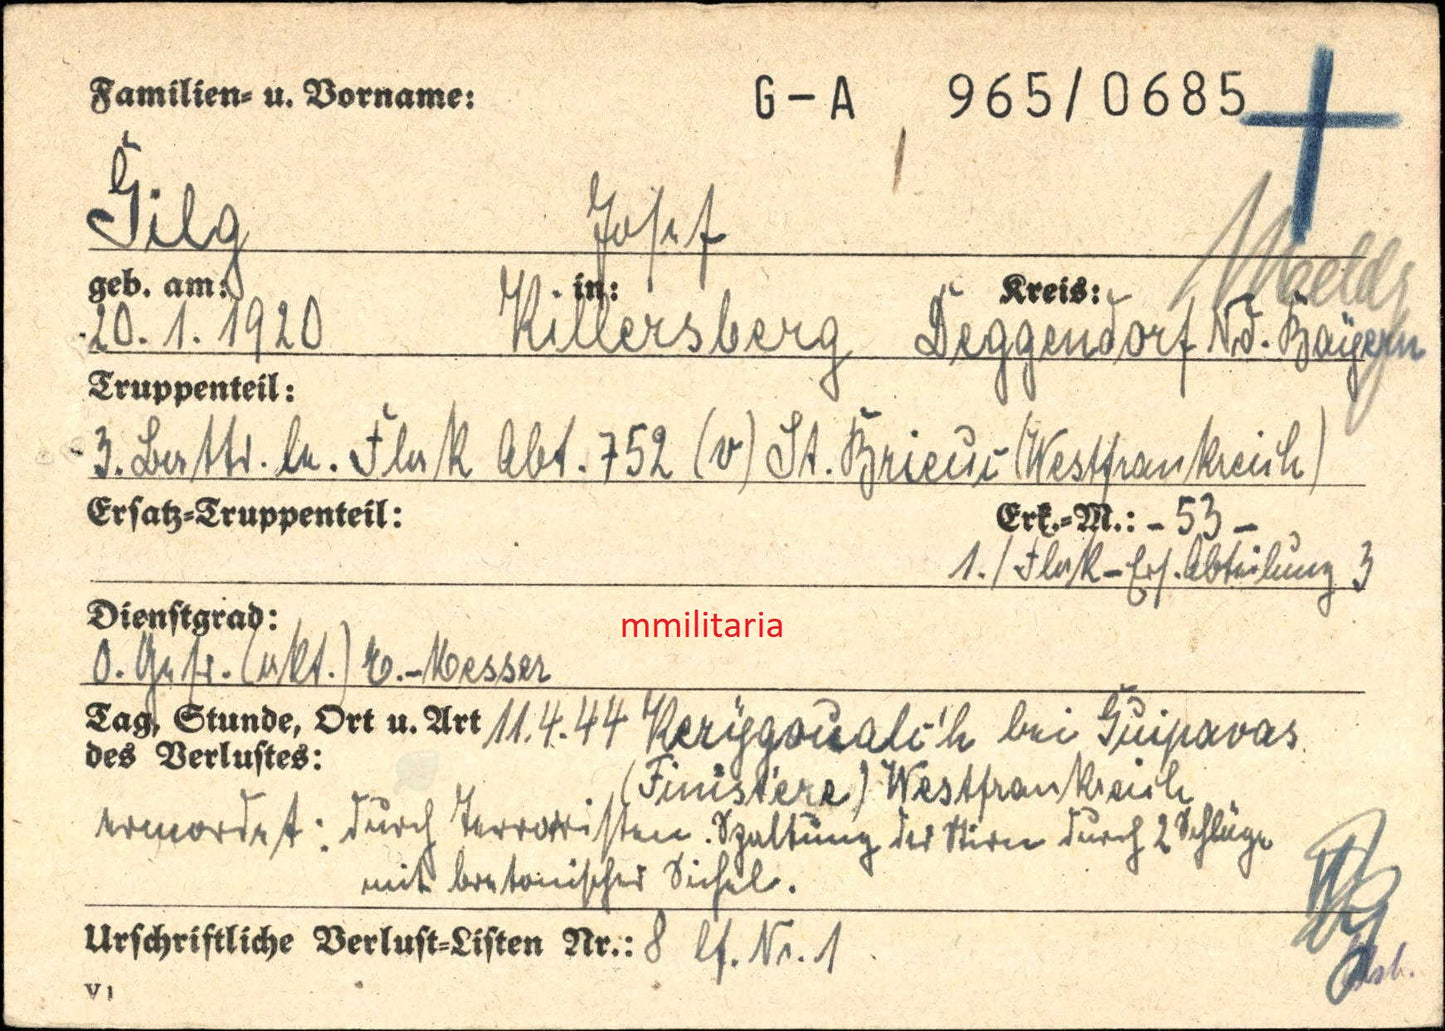 Familien- u. Vorname: G-A 965/0685
Gilg Josef
geb. am: in: Kreis:
20. 1. 1920 Killersberg Deggendorf Nd. Bayern
Truppenteil:
3. Battr. le. Flak Abt. 752 (v) St. Brieuc (Westfrankreich)
Ersatz-Truppenteil: Erk.-M.: - 53 -
1./Flak-Ers. Abteilung 3
Dienstgrad:
mmilitaria
O. Gefr. (akt.) E.-Messer
Tag, Stunde, Ort u. Art 11.4.44 bei Guipavas
des Verlustes: (Finistère) Westfrankreich
ermordet: durch Terroristen. Spaltung der Stirn durch 2 Schläge
mit bretonischer Sichel.
Urschriftliche Verlust-Listen Nr.: 8 lf. Nr. 1
V 1